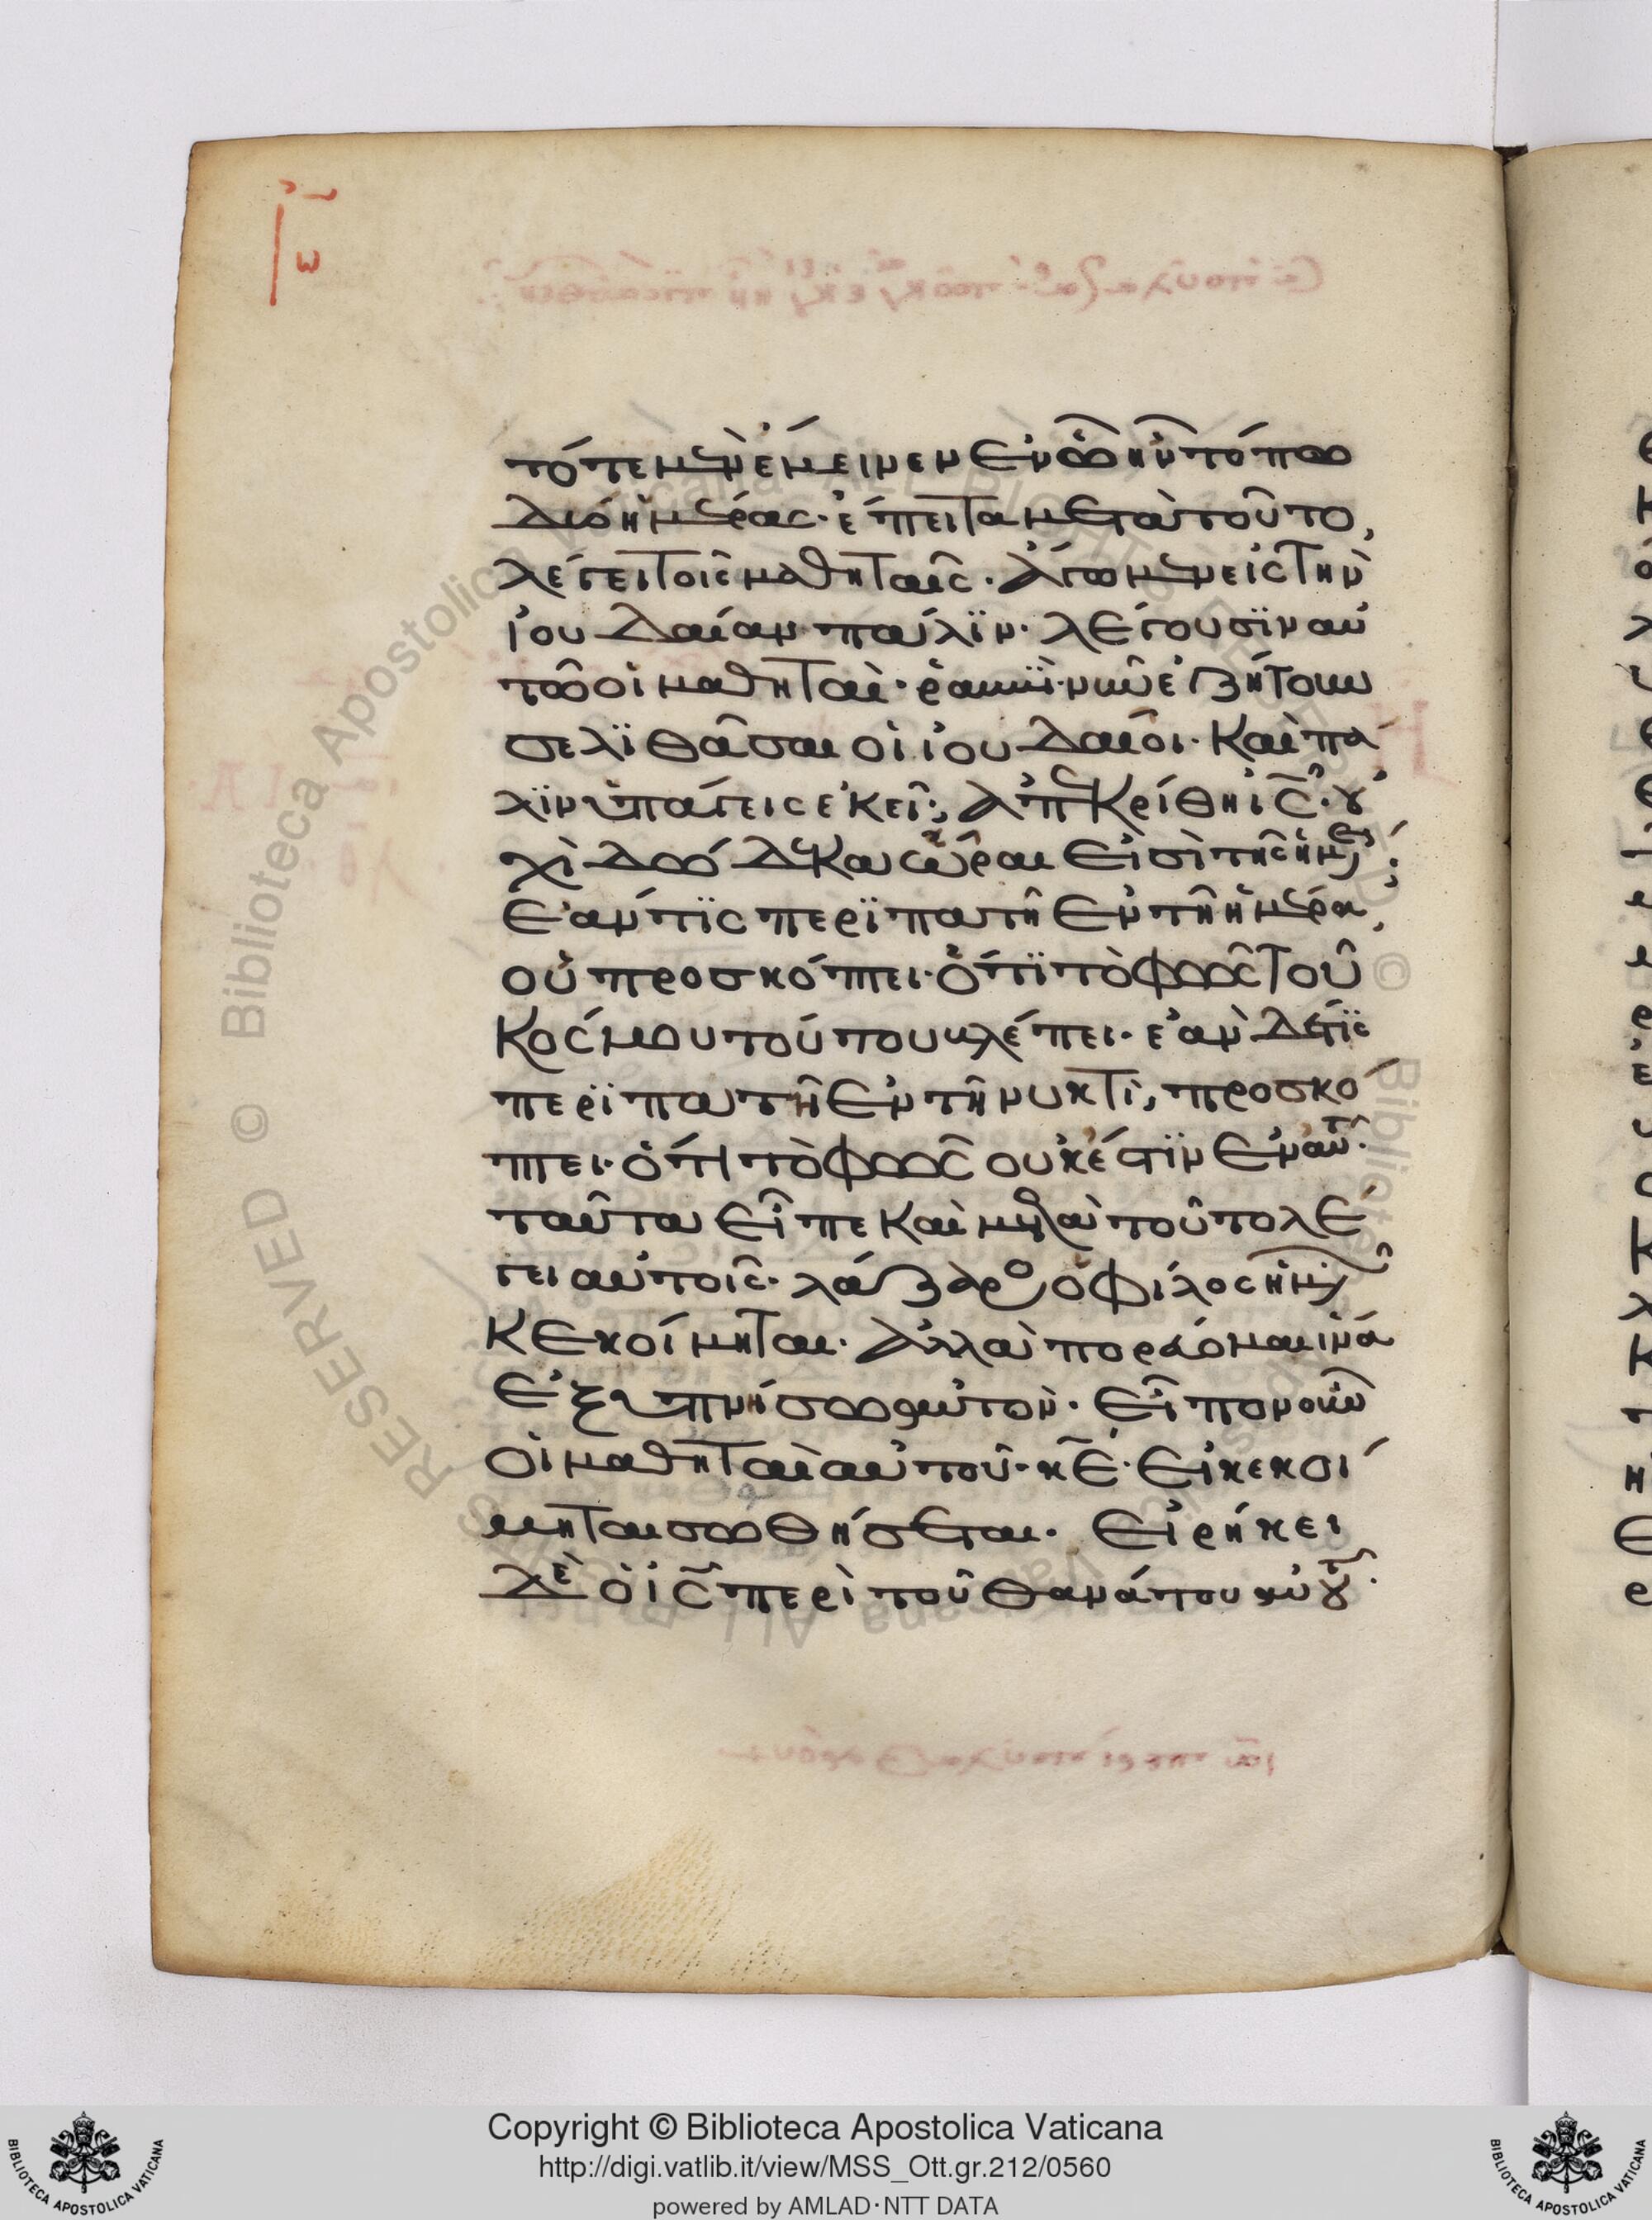 ἰω
τότε μὲν ἔμεινεν ἐν ᾧ ἦν τόπω
δύο ἡμέρας· ἔπειτα μετὰ τοῦτο,
λέγει τοῖς μαθηταῖς· ἄγωμεν εἰς τὴν
ἰουδαίαν πάλϊν· λέγουσϊν αὐ
τῶ οἱ μαθηταὶ· ῥαββϊ· νῦν ἐζήτουν
σε λϊθᾶσαι οἱ ἰουδαῖοι· καὶ πά
λϊν ὑπάγεις ἐκεῖ; ἀπεκρίθη ἰς̅· οὐ
χὶ δώδεκα ὧραι εἰσὶ τῆς ἡμέρας;
ἐάν τϊς περϊπατῆ ἐν τῆ ἡμέρα,
οὐ προσκόπτει· ὅτϊ τὸ φῶς τοῦ
κόσμου τούτου βλέπει· ἐὰν δέ τϊς
περϊπατῆ ἐν τῆ νυκτὶ, προσκό
πτει· ὅτι τὸ φῶς οὐκ ἔστϊν ἐν αὐτῶ·
ταῦτα εἶπε καὶ μετὰ τοῦτο λέ
γει αὐτοῖς· λάζαρος ὁ φίλος ἡμῶν
κεκοίμηται· ἀλλὰ πορεύομαι ἵνα
ἐξυπνήσω αὐτὸν· εἶπον οὖν
οἱ μαθηταὶ αὐτοῦ· κε̅· εἰ κεκοί
μηται σωθήσεται· εἰρήκει
δὲ ὁ ις̅ περὶ τοῦ θανάτου αὐτοῦ·
Copyright © Biblioteca Apostolica Vaticana
http://digi.vatlib.it/view/MSS_Ott.gr.212/0560
powered by AMLAD·NTT DATA